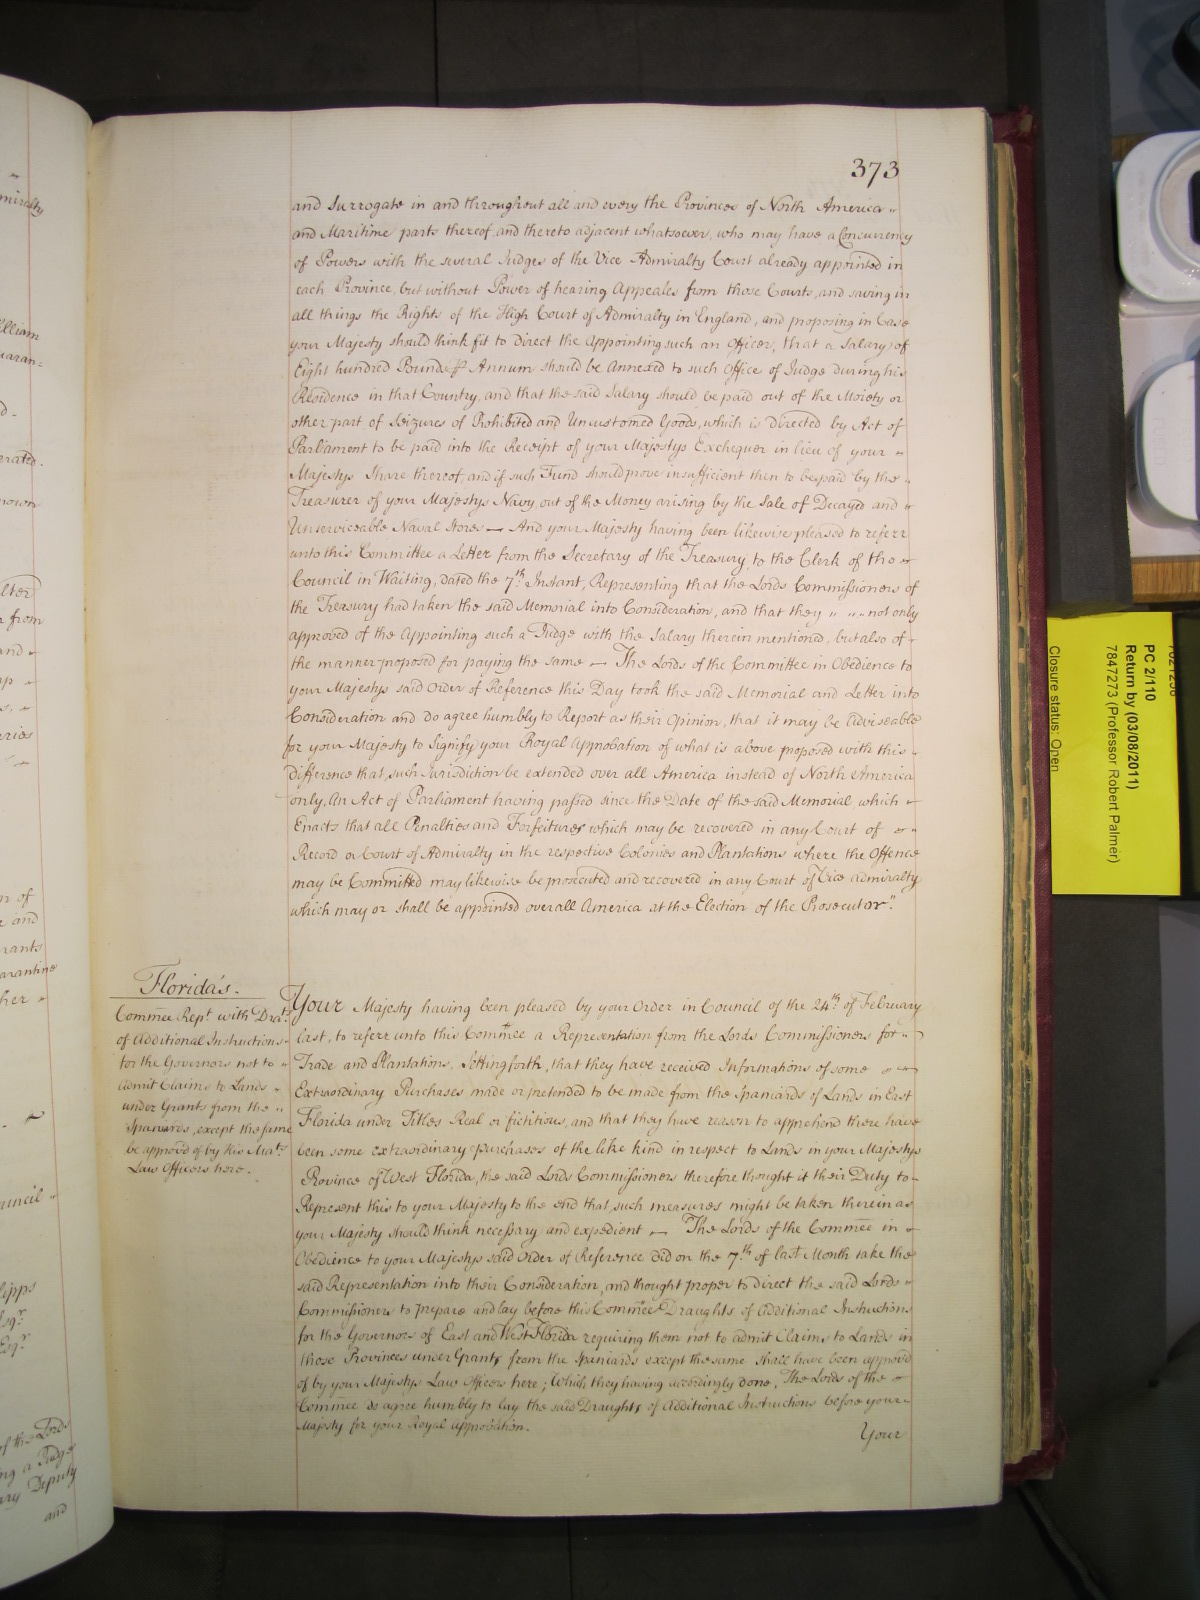 373
and Surrogate in and throughout all and every the Provinces of North America
and Maritime parts thereof and thereto adjacent whatsoever, who may have a Concurrency
of Powers with the several Judges of the Vice Admiralty Court already appointed in
each Province, but without Power of hearing Appeales from those Courts, and saving in
all things the Rights of the High Court of Admiralty in England, and proposing in Case
your Majesty should think fit to Direct the Appointing such an Officer, that a Salary of
Eight hundred Pounds ⅌ Annum should be Annexed to such Office of Judge during his
Residence in that Country, and that the said Salary should be paid out of the Moiety or
other part of Seizures of Prohibited and Uncustomed Goods, which is Directed by Act of
Parliament to be paid into the Receipt of your Majestys Exchequer in lieu of your
Majestys Share thereof, and if such Fund should prove insufficient then to be paid by the
Treasurer of your Majestys Navy, out of the Money arising by the Sale of Decayed and
Unserviceable Naval Stores — And your Majesty having been likewise pleased to referr
unto this Committee a Letter from the Secretary of the Treasury, to the Clerk of the
Council in Waiting, dated the 7th Instant, Representing that the Lords Commissioners of
the Treasury had taken the said Memorial into Consideration, and that they not only
approved of the Appointing such a Judge with the Salary therein mentioned, but also of
the manner proposed for paying the same — The Lords of the Committee in Obedience to
your Majestys said Order of Reference this Day took the said Memorial and Letter into
Consideration and do agree humbly to Report as their Opinion, that it may be Adviseable
for your Majesty to Signify your Royal Approbation of what is above proposed with this
difference that, such Jurisdiction be extended over all America instead of North America
only, An Act of Parliament having passed since the Date of the said Memorial which
Enacts that all Penalties and Forfeitures which may be recovered in any Court of
Record or Court of Admiralty in the respective Colonies and Plantations where the Offence
may be Committed may likewise be prosecuted and recovered in any Court of Vice Admiralty
which may or shall be appointed over all America at the Election of the Prosecutor."
Florida's.
Commee Rept with Drats
of Additional Instructions
for the Governors not to
Admit Claims to Lands
under Grants from the
Spaniards, except the same
be approved of by His Mats
Law Officers here.
Your Majesty having been pleased by your Order in Council of the 24th of February
last, to referr unto this Commttee a Representation from the Lords Commissioners for
Trade and Plantations, Setting forth, that they have received Informations of some
Extraordinary Purchases made or pretended to be made from the Spaniards of Lands in East
Florida under Titles Real or fictitious, and that they have reason to apprehend there have
been some extraordinary purchases of the like kind in respect to Lands in your Majestys
Province of West Florida, the said Lords Commissioners therefore thought it their Duty to
Represent this to your Majesty to the end that, such measures might be taken therein as
your Majesty should think necessary and expedient — The Lords of the Commee in
Obedience to your Majestys said Order of Reference did on the 7th of last Month take the
said Representation into their Consideration, and thought proper to direct the said Lords
Commissioners to prepare and lay before this Commee Draughts of Additional Instructions
for the Governors of East and West Florida requiring them not to admit Claims to Lands in
those Provinces under Grants from the Spaniards except the same shall have been approvd
of by your Majestys Law Officers here; Which they having accordingly done, The Lords of the
Commee do agree humbly to lay the said Draughts of Additional Instructions before your
Majesty for your Royal Approbation.
Your
PC 2/110
Return by (03/08/2011)
7847273 (Professor Robert Palmer)
Closure status: Open